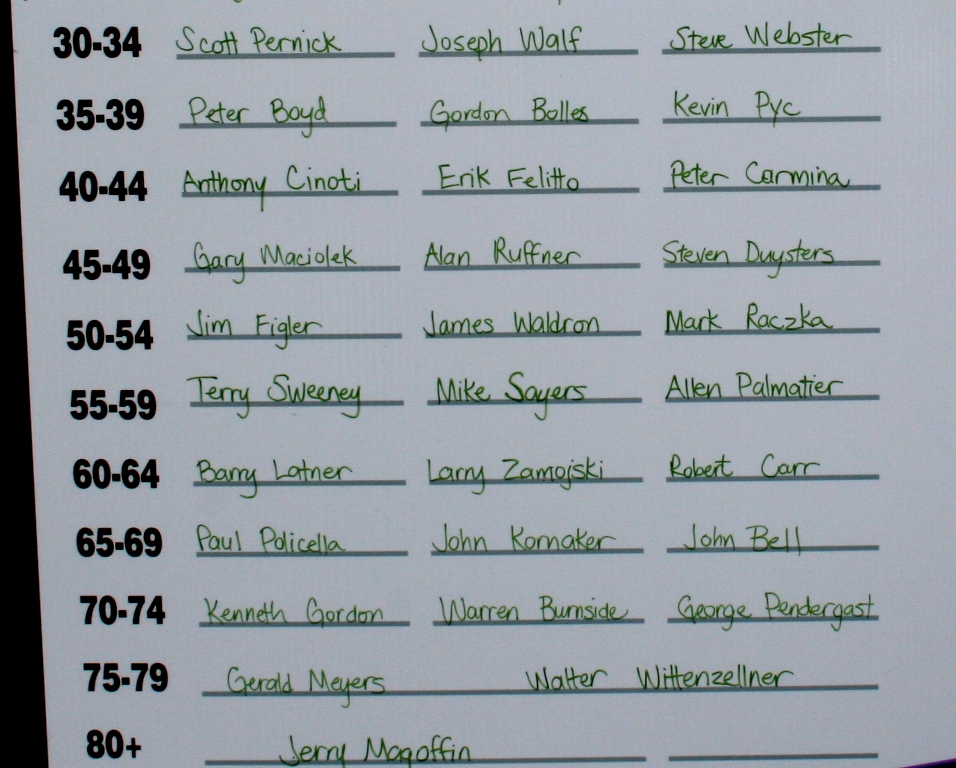 30-34 Scott Pernick Joseph Walf Steve Webster
35-39 Peter Boyd Gordon Bolles Kevin Pyc
40-44 Anthony Cinoti Erik Felitto Peter Carmina
45-49 Gary Maciolek Alan Ruffner Steven Duysters
50-54 Jim Figler James Waldron Mark Raczka
55-59 Terry Sweeney Mike Sayers Allen Palmatier
60-64 Barry Latner Larry Zamojski Robert Carr
65-69 Paul Policella John Kornaker John Bell
70-74 Kenneth Gordon Warren Burnside George Pendergast
75-79 Gerald Meyers Walter Wittenzellner
80+ Jerry Magoffin